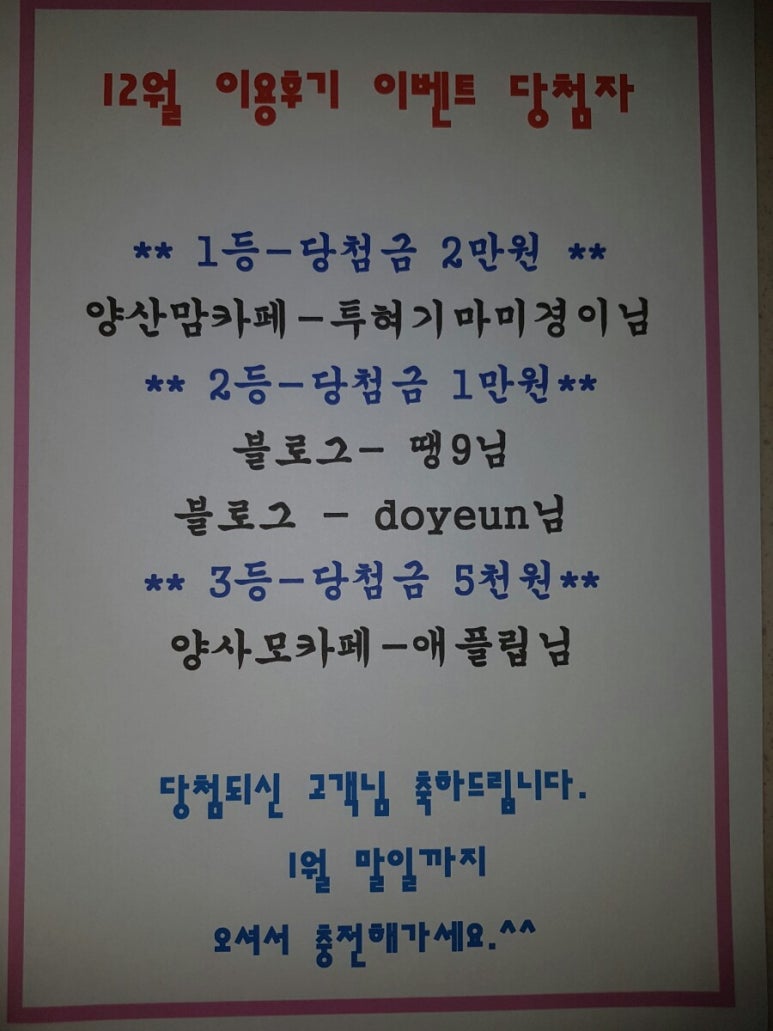 12월 이용후기 이벤트 당첨자
** 1등-당첨금 2만원 **
양산맘카페-투혀기마미경이님
** 2등-당첨금 1만원**
블로그- 땡9님
블로그 - doyeun님
** 3등-당첨금 5천원**
양사모카페-애플립님
당첨되신 고객님 축하드립니다.
1월 말일까지
오셔서 충전해가세요.^^